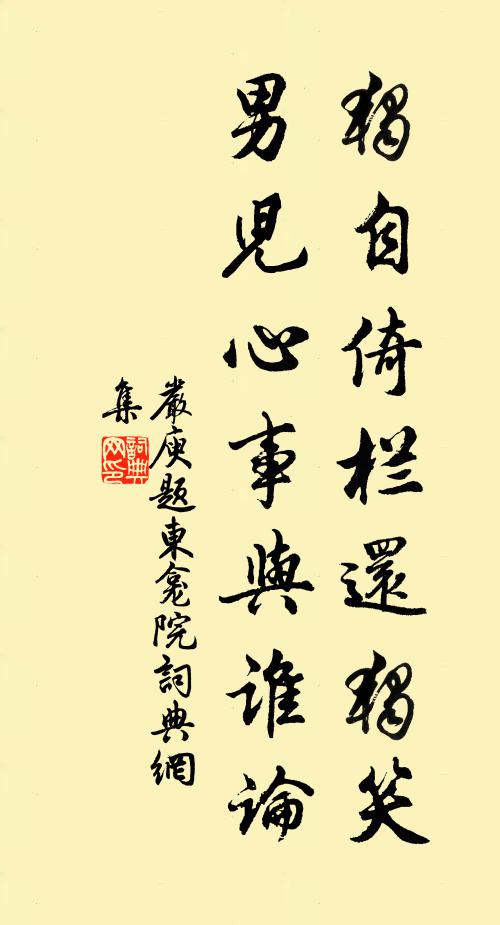 獨自倚栏還獨笑
男兒心事與誰論
嚴庾題東龕院詞典網
集
詞典网印